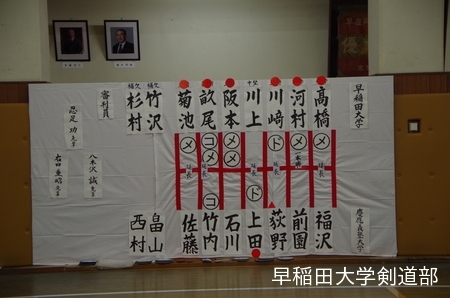 早稲田大学
髙橋
河村
川﨑
川上
阪本
畝尾
菊池
補欠
竹沢
補欠
杉村
審判員
忍足 功 先生
八木沢 誠 先生
メ
一本勝
ド
延長
メ
メ
コ
メ
延長
メ
延長
ド
コ
慶應義塾大学
福沢
前園
荻野
上田
石川
竹内
佐藤
畠山
西村
早稲田大学剣道部